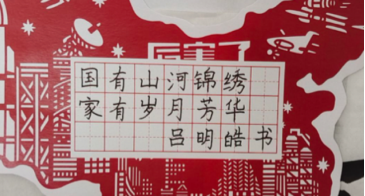 厉害了
国有山河锦绣
家有岁月芳华
吕明皓 书